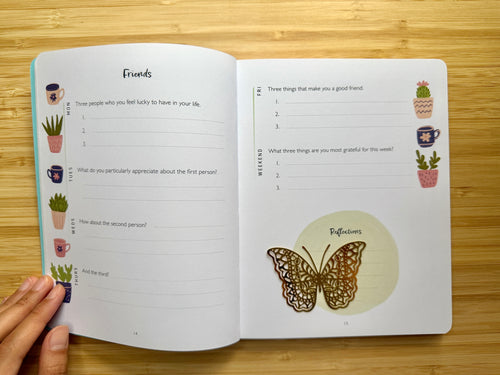 Friends
MON
Three people who you feel lucky to have in your life.
1.
2.
3.
TUES
What do you particularly appreciate about the first person?
WEDS
How about the second person?
THURS
And the third?
14
FRI
Three things that make you a good friend.
1.
2.
3.
WEEKEND
What three things are you most grateful for this week?
1.
2.
3.
Reflections
15